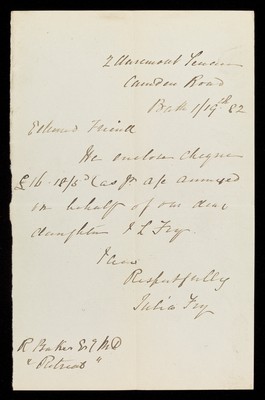 2 Claremont Terrace
Camden Road
Bath 1/19th 82
Esteemed Friend
We enclose cheque
£16.18/5d (as pr a/c annexed
on behalf of our dear
daughter J L Fry.
I am
Respectfully
Julia Fry
R Baker Esqr MD
"Retreat"